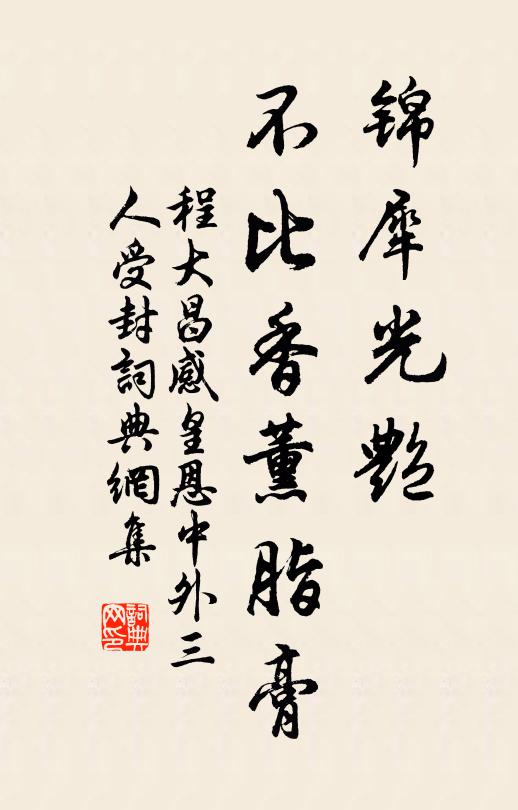 锦犀光艷
不比香薰脂膏
程大昌感皇恩中外三
人受封詞典網集
詞典
网印